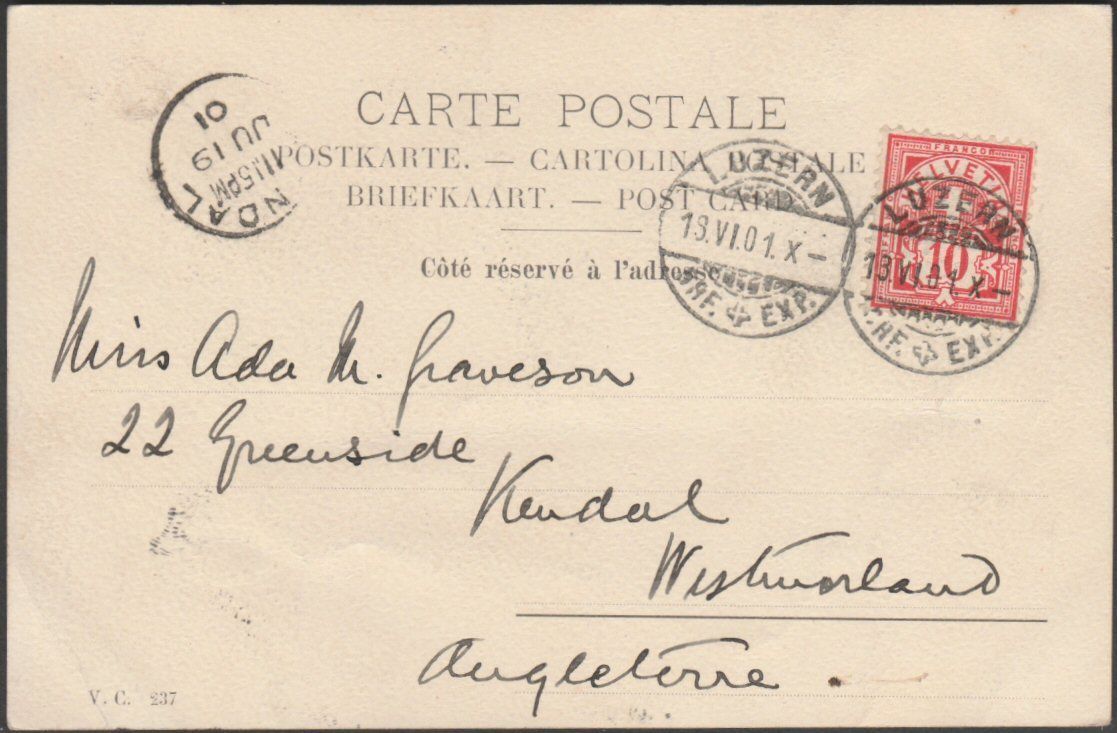 CARTE POSTALE
POSTKARTE. — CARTOLINA POSTALE
BRIEFKAART. — POST CARD
Côté réservé à l'adresse
NDAL
1115PM
JU 19
01
LUZERN
13.VI.01. X —
BRF. EXP.
FRANCO
HELVETIA
10
LUZERN
13.VI.01. X —
BRF. EXP.
Miss Ada M. Graveson
22 Greenside
Kendal
Westmorland
Angleterre.
V. C. 237